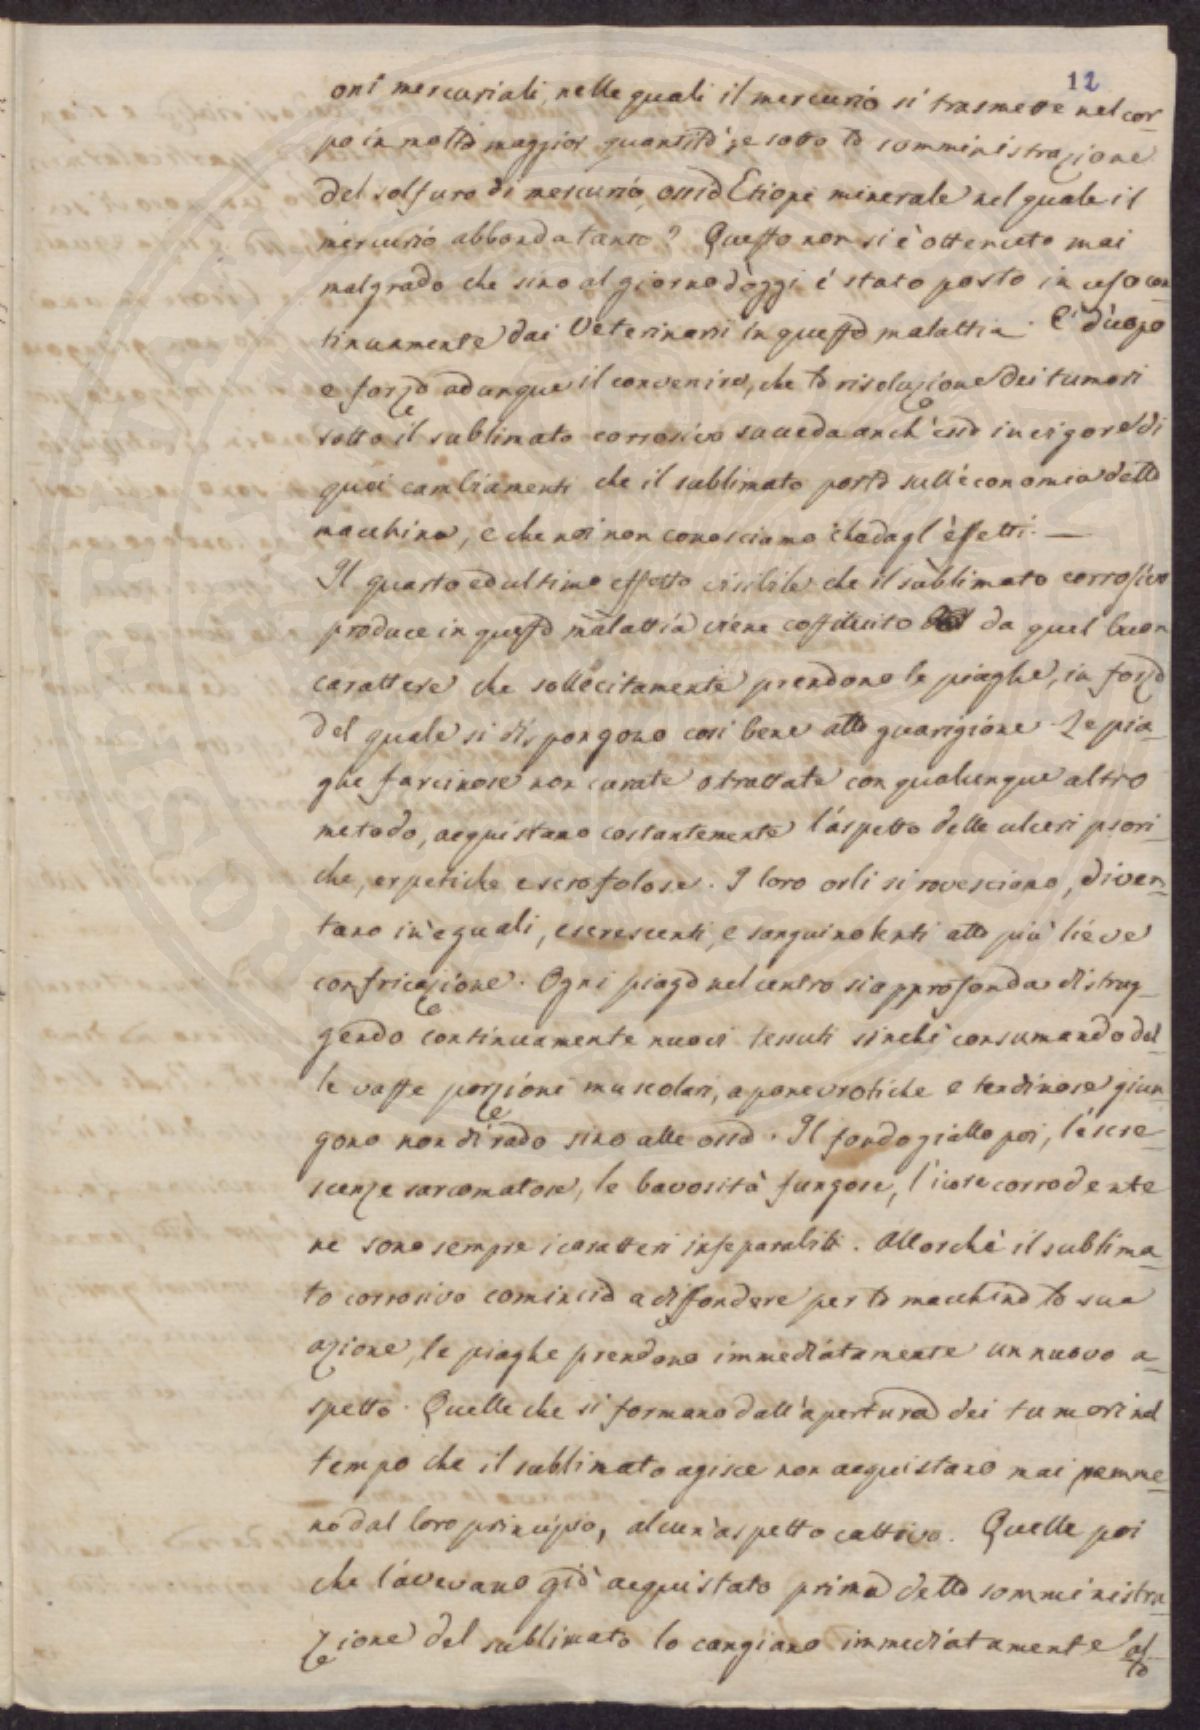 12
oni mercuriali, nelle quali il mercurio si trasmette nel cor-
po in molta maggior quantità, e sotto la somministrazione
del solfuro di mercurio, ossia Etiope minerale nel quale il
mercurio abbonda tanto? Questo non si è ottenuto mai
malgrado che sino al giorno d'oggi è stato posto in uso con-
tinuamente dai Veterinarii in questa malattia. È d'uopo
e forza adunque il convenire, che la risoluzione dei tumori
sotto il sublimato corrosivo succeda anch'essa in vigore di
quei cambiamenti che il sublimato porta sull'economia della
macchina, e che noi non conosciamo che dagl'effetti. —
Il quarto ed ultimo effetto visibile che il sublimato corrosivo
produce in questa malattia viene costituito da quel buon
carattere che sollecitamente prendono le piaghe, in forza
del quale si dispongono così bene alla guarigione. Le pia-
ghe farcinose non curate o trattate con qualunque altro
metodo, acquistano costantemente l'aspetto delle ulceri psori-
che, erpetiche e scrofolose. I loro orli si rovesciano, diven-
tano ineguali, escrescenti, e sanguinolenti alla più lieve
confricazione. Ogni piaga nel centro si approfonda distrug-
gendo continuamente nuovi tessuti sinchè consumando del-
le vaste porzioni muscolari, aponevrotiche e tendinose giun-
gono non di rado sino alle ossa. Il fondo giallo poi, l'escre-
scenze sarcomatose, le bavosità fungose, l'icore corrodente
ne sono sempre i caratteri inseparabili. Allorchè il sublima-
to corrosivo comincia a diffondere per la macchina la sua
azione, le piaghe prendono immediatamente un nuovo a-
spetto. Quelle che si formano dall'apertura dei tumori nel
tempo che il sublimato agisce non acquistano mai nemme-
no dal loro principio, alcun'aspetto cattivo. Quelle poi
che l'avevano già acquistato prima della somministra-
zione del sublimato lo cangiano immediatamente al-
la